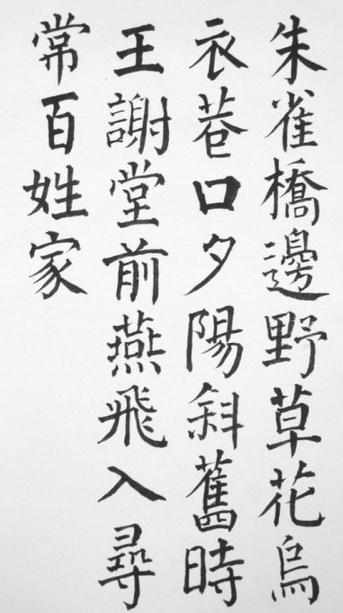 朱雀橋邊野草花烏
衣巷口夕陽斜舊時
王謝堂前燕飛入尋
常百姓家